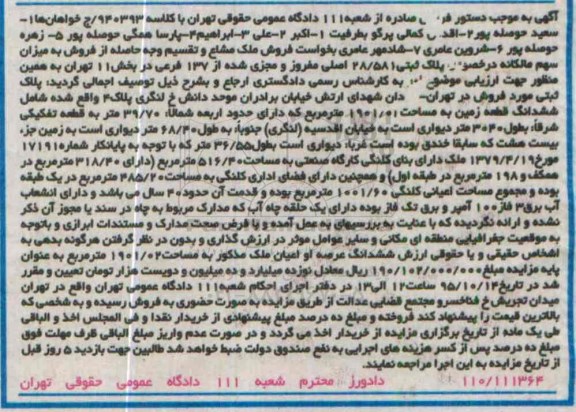 آگهی به موجب دستور صادره از شعبه۱۱۱ دادگاه عمومی حقوقی تهران با کلاسه ۹۴۰۳۹۳/ج خواهان‌ها۱-
سعید حوصله پور۲-اقد کمالی پرگو بطرفیت ۱-اکبر ۲-علی ۳-ابراهیم۴-پارسا همگی حوصله پور ۵- زهره
حوصله پور ۶-شروین عامری ۷-شادمهر عامری بخواست فروش ملک مشاع و تقسیم وجه حاصله از فروش به میزان
سهم مالکانه درخصو پلاک ثبتی۲۸/۵۸۱ اصلی مفروز و مجزی شده از ۱۳۷ فرعی در بخش۱۱ تهران به همین
منظور جهت ارزیابی موضوع به کارشناس رسمی دادگستری ارجاع و بشرح ذیل توصیف اجمالی گردید: پلاک
ثبتی مورد فروش در تهران- دان شهدای ارتش خیابان برادران موحد دانش خ لنگری پلاک۴ واقع شده شامل
ششدانگ قطعه زمین به مساحت مترمربع که دارای حدود اربعه شمالا: ۳۹/۷۰ متر به قطعه تفکیکی
شرقاً: بطول۳۰۴۰ متر دیواری است به خیابان اقدسیه (لنگری) جنوبا: به طول۶۸/۲۰ متر دیواری است به زمین جز،
بیست هشت که سابقا خندق بوده است غربا: دیواری است بطول۳۶/۵۵ متر که با توجه به پایانکار شماره۱۷۱۹۱
مورخ۱۳۷۹/۴/۱۹ ملک دارای بنای کلنگی کارگاه صنعتی به مساحت۵۱۶/۴۰ مترمربع (دارای ۳۱۸/۴۰ مترمربع در
همکف و ۱۹۸ مترمربع در طبقه اول) و همچنین دارای فضای اداری کلنگی به مساحت۴۸۵/۲۰ مترمربع در یک طبقه
بوده و مجموع مساحت اعیانی کلنگی ۱۰۰۱/۶۰ مترمربع بوده و قدمت آن حدود۴۰ سال می باشد و دارای انشعاب
آب برق۳ فاز۱۰۰ آمپر و برق تک فاز بوده دارای یک حلقه چاه آب که مدارک مربوط به چاه در سند یا مجوز آن ذکر
نشده و ارائه نگردیده که با عنایت به بررسیهای به عمل آمده و با فرض صحت مدارک و مستندات ابرازی و باتوجه
به موقعیت جغرافیایی منطقه ای مکانی و سایر عوامل موثر در ارزش گذاری و بدون در نظر گرفتن هرگونه بدهی به
اشخاص حقیقی و یا حقوقی ارزش ششدانگ عرصه و اعیان ملک مذکور به مساحت۱۹۰۱/۰۲ مترمربع به عنوان
پایه مزایده مبلغ۱۹۰/۱۰۲/۰۰۰/۰۰۰ ریال معادل نوزده میلیارد و ده میلیون و دویست هزار تومان تعیین و مقرر
شد در تاریخ۹۵/۱۰/۱۴ ساعت۱۲ الی۱۳ در دفتر اجرای احکام شعبه۱۱۱ دادگاه عمومی تهران واقع در تهران
میدان تجریش خ فناخسرو مجتمع قضایی عدالت از طریق مزایده به صورت حضوری به فروش رسیده و به شخصی که
بالاترین قیمت را پیشنهاد کند فروخته و مبلغ ده درصد مبلغ پیشنهادی از خریدار نقدا و فی المجلس اخذ و الباقی
طی یک ماده از تاریخ برگزاری مزایده از خریدار اخذ می گردد و در صورت عدم واریز مبلغ الباقی ظرف مهلت فوق
مبلغ ده درصد پس از کسر هزینه های اجرایی به نفع صندوق دولت ضبط خواهد شد طالبین جهت بازدید ۵ روز قبل
از تاریخ مزایده به این اجرا مراجعه نمایند.
۱۱۰/۱۱۱۳۶۴ دادورز محترم شعبه ۱۱۱ دادگاه عمومی حقوقی تهران